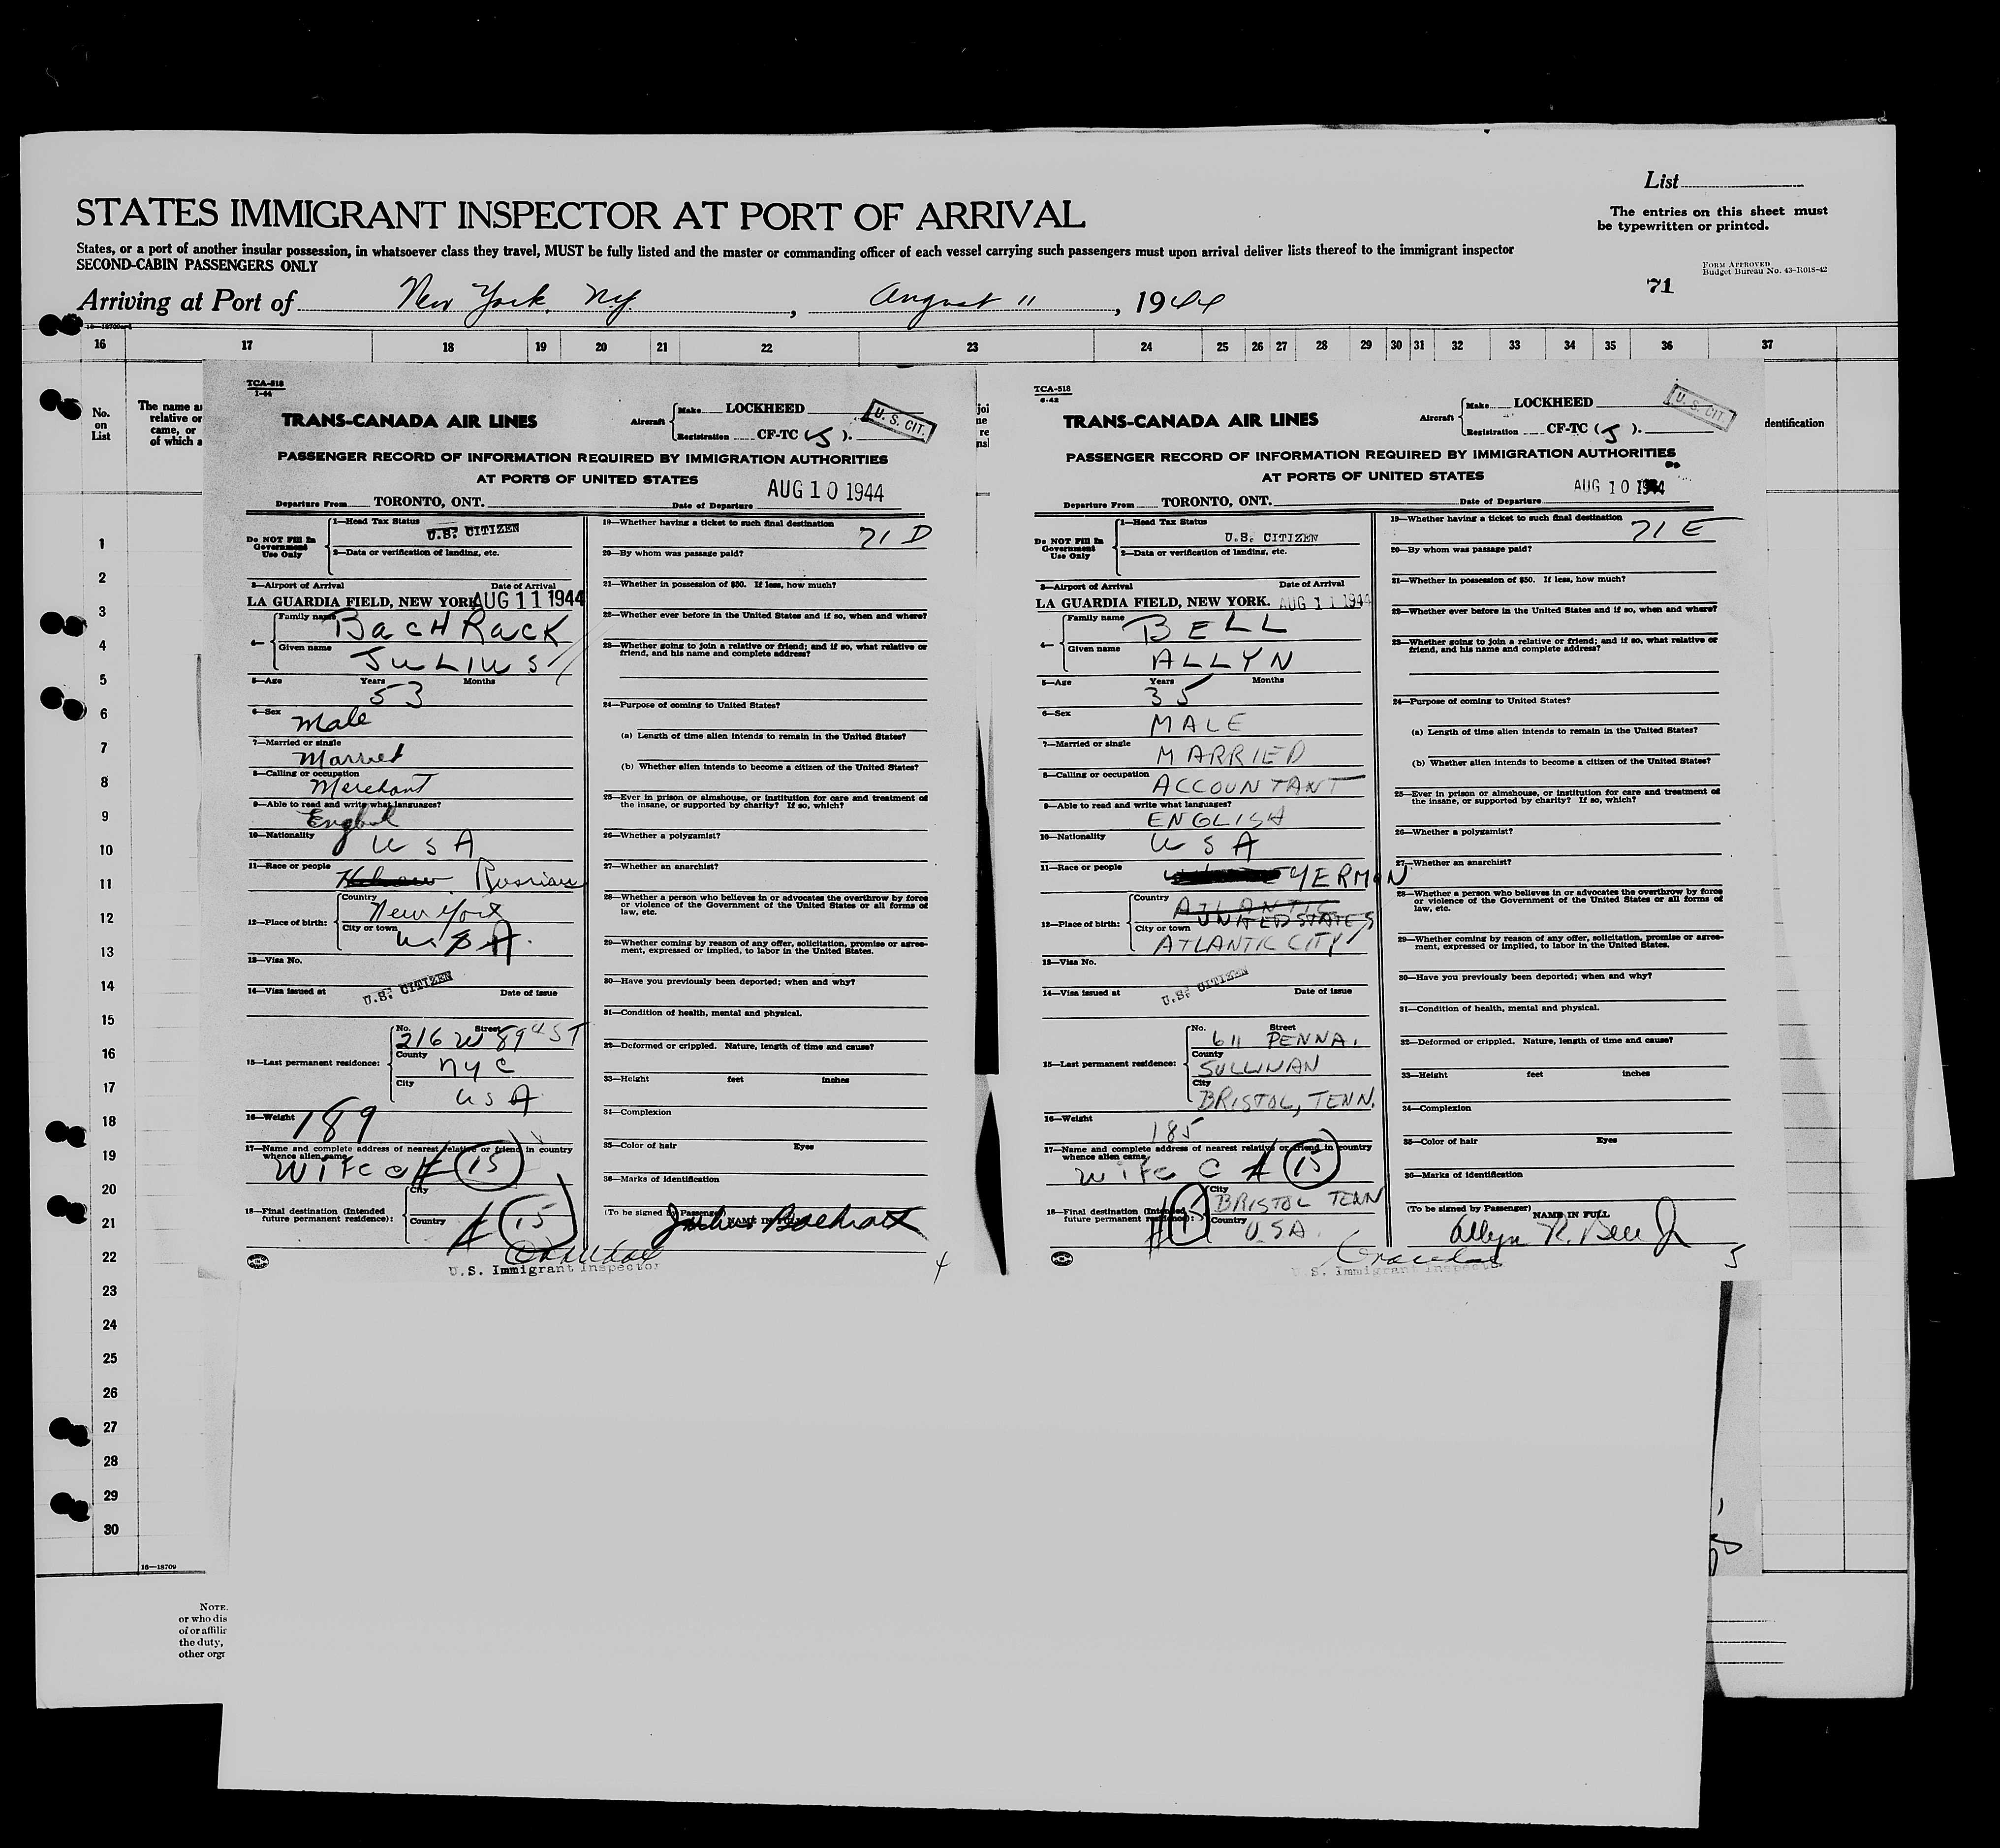 List
STATES IMMIGRANT INSPECTOR AT PORT OF ARRIVAL
The entries on this sheet must
be typewritten or printed.
States, or a port of another insular possession, in whatsoever class they travel, MUST be fully listed and the master or commanding officer of each vessel carrying such passengers must upon arrival deliver lists thereof to the immigrant inspector
SECOND-CABIN PASSENGERS ONLY
FORM APPROVED
Budget Bureau No. 43-R018-42
71
Arriving at Port of New York, N.Y., August 11, 1944
16 17 18 19 20 21 22 23 24 25 26 27 28 29 30 31 32 33 34 35 36 37
No.
on
List
The name a
relative or
came, or
of which a
identification
1
2
3
4
5
6
7
8
9
10
11
12
13
14
15
16
17
18
19
20
21
22
23
24
25
26
27
28
29
30
16—18709
NOTE.
or who dis
of or affilir
the duty,
other orgr
TCA-518
1-44
TRANS-CANADA AIR LINES
Aircraft
Make LOCKHEED
Registration CF-TC (J).
U. S. CIT.
PASSENGER RECORD OF INFORMATION REQUIRED BY IMMIGRATION AUTHORITIES
AT PORTS OF UNITED STATES
AUG 10 1944
Departure From TORONTO, ONT. Date of Departure
Do NOT Fill In
Government
Use Only
1—Head Tax Status U.S. CITIZEN
2—Data or verification of landing, etc.
3—Airport of Arrival Date of Arrival
LA GUARDIA FIELD, NEW YORK. AUG 11 1944
4— Family name BACHRACK
Given name JULIUS
5—Age Years 53 Months
6—Sex Male
7—Married or single Married
8—Calling or occupation Merchant
9—Able to read and write what languages?
10—Nationality USA
11—Race or people Russian
12—Place of birth: Country New York
City or town USA.
13—Visa No.
14—Visa issued at U.S. CITIZEN Date of issue
15—Last permanent residence: No. Street 216 W 89 ST
County NYC
City USA
16—Weight 189
17—Name and complete address of nearest relative or friend in country
whence alien came. Wife c # 15
18—Final destination (Intended
future permanent residence): City
Country # 15
U.S. Immigrant Inspector
19—Whether having a ticket to such final destination 71 D
20—By whom was passage paid?
21—Whether in possession of $50. If less, how much?
22—Whether ever before in the United States and if so, when and where?
23—Whether going to join a relative or friend; and if so, what relative or
friend, and his name and complete address?
24—Purpose of coming to United States?
(a) Length of time alien intends to remain in the United States?
(b) Whether alien intends to become a citizen of the United States?
25—Ever in prison or almshouse, or institution for care and treatment of
the insane, or supported by charity? If so, which?
26—Whether a polygamist?
27—Whether an anarchist?
28—Whether a person who believes in or advocates the overthrow by force
or violence of the Government of the United States or all forms of
law, etc.
29—Whether coming by reason of any offer, solicitation, promise or agree-
ment, expressed or implied, to labor in the United States.
30—Have you previously been deported; when and why?
31—Condition of health, mental and physical.
32—Deformed or crippled. Nature, length of time and cause?
33—Height feet inches
34—Complexion
35—Color of hair Eyes
36—Marks of identification
(To be signed by Passenger) NAME IN FULL
Julius Bachrack
4
TCA-518
6-42
TRANS-CANADA AIR LINES
Aircraft
Make LOCKHEED
Registration CF-TC (J).
U. S. CIT.
PASSENGER RECORD OF INFORMATION REQUIRED BY IMMIGRATION AUTHORITIES
AT PORTS OF UNITED STATES
AUG 10 1944
Departure From TORONTO, ONT. Date of Departure
Do NOT Fill In
Government
Use Only
1—Head Tax Status U.S. CITIZEN
2—Data or verification of landing, etc.
3—Airport of Arrival Date of Arrival
LA GUARDIA FIELD, NEW YORK. AUG 11 1944
4— Family name BELL
Given name ALLYN
5—Age Years 35 Months
6—Sex MALE
7—Married or single MARRIED
8—Calling or occupation ACCOUNTANT
9—Able to read and write what languages? ENGLISH
10—Nationality USA
11—Race or people GERMAN
12—Place of birth: Country ATLANTIC UNITED STATES
City or town ATLANTIC CITY
13—Visa No.
14—Visa issued at U.S. CITIZEN Date of issue
15—Last permanent residence: No. Street 611 PENNA.
County SULLIVAN
City BRISTOL, TENN.
16—Weight 185
17—Name and complete address of nearest relative or friend in country
whence alien came. Wife C # 15
18—Final destination (Intended
future permanent residence): City BRISTOL TENN
Country USA.
U.S. Immigrant Inspector
19—Whether having a ticket to such final destination 71 E
20—By whom was passage paid?
21—Whether in possession of $50. If less, how much?
22—Whether ever before in the United States and if so, when and where?
23—Whether going to join a relative or friend; and if so, what relative or
friend, and his name and complete address?
24—Purpose of coming to United States?
(a) Length of time alien intends to remain in the United States?
(b) Whether alien intends to become a citizen of the United States?
25—Ever in prison or almshouse, or institution for care and treatment of
the insane, or supported by charity? If so, which?
26—Whether a polygamist?
27—Whether an anarchist?
28—Whether a person who believes in or advocates the overthrow by force
or violence of the Government of the United States or all forms of
law, etc.
29—Whether coming by reason of any offer, solicitation, promise or agree-
ment, expressed or implied, to labor in the United States.
30—Have you previously been deported; when and why?
31—Condition of health, mental and physical.
32—Deformed or crippled. Nature, length of time and cause?
33—Height feet inches
34—Complexion
35—Color of hair Eyes
36—Marks of identification
(To be signed by Passenger) NAME IN FULL
Allyn R. Bell Jr
5